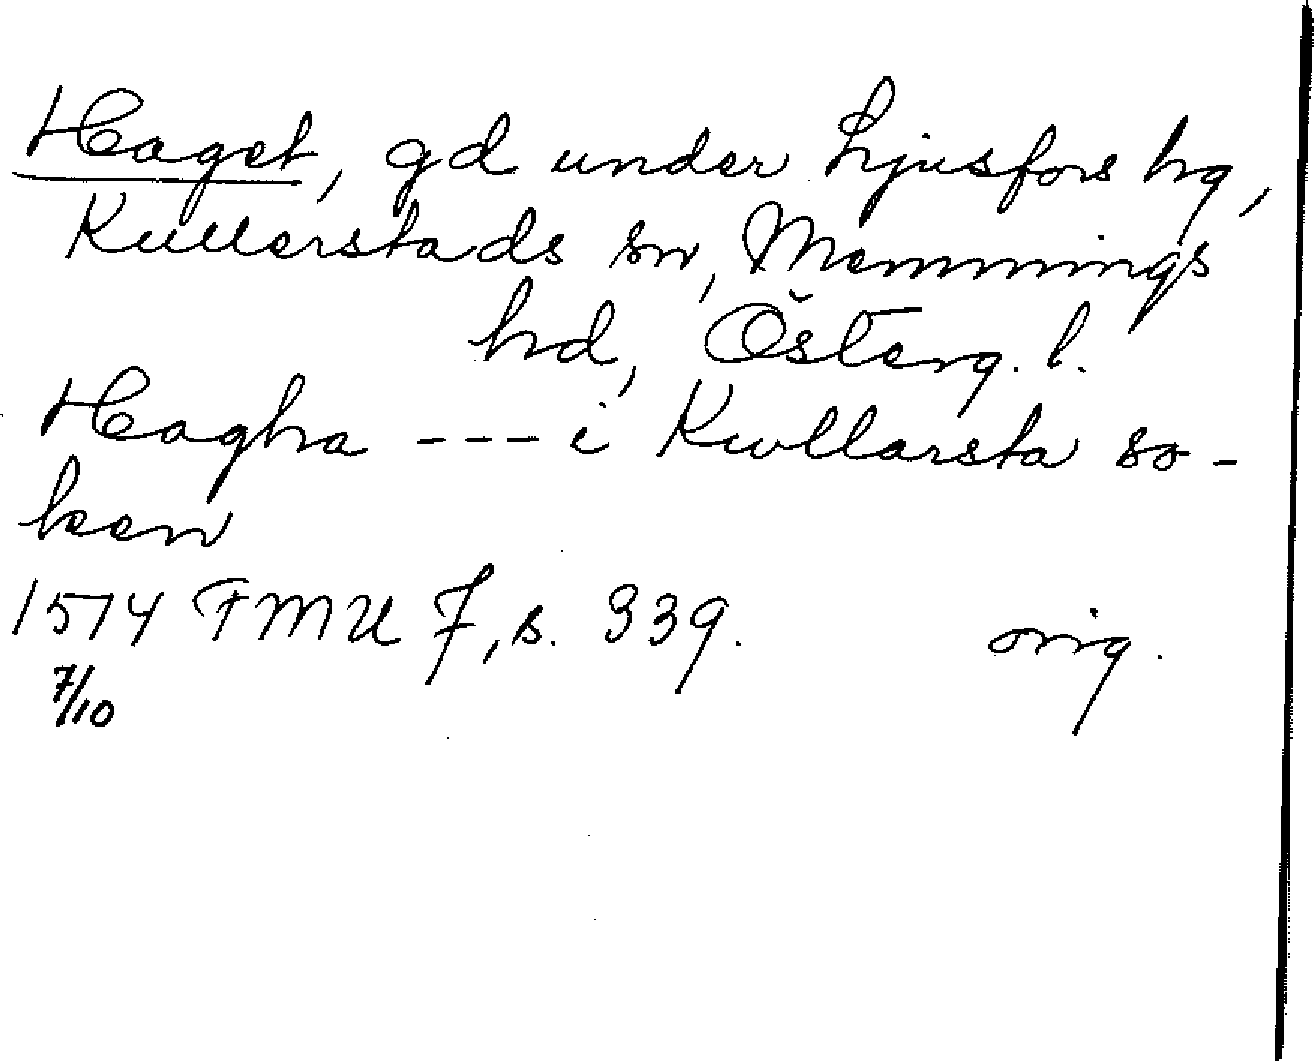 Haget, gd under Ljusfors hg,
Kullerstads sn, Memmings
hd, Österg. l.
Hagha --- i Kwllarsta so-
ken
1574 FMU 7, s. 339. orig.
7/10